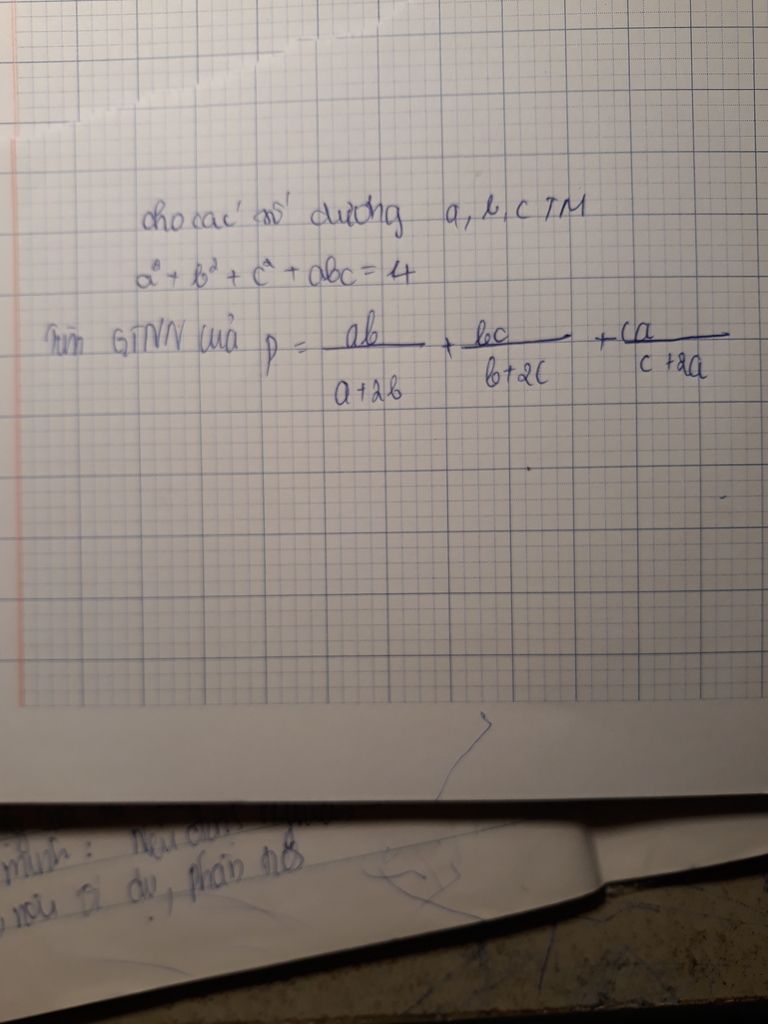 cho các số dương a, b, c TM
a² + b² + c² + abc = 4
Tìm GTNN của P = ab/(a+2b) + bc/(b+2c) + ca/(c+2a)
minh: Nếu
nếu dụ, phản